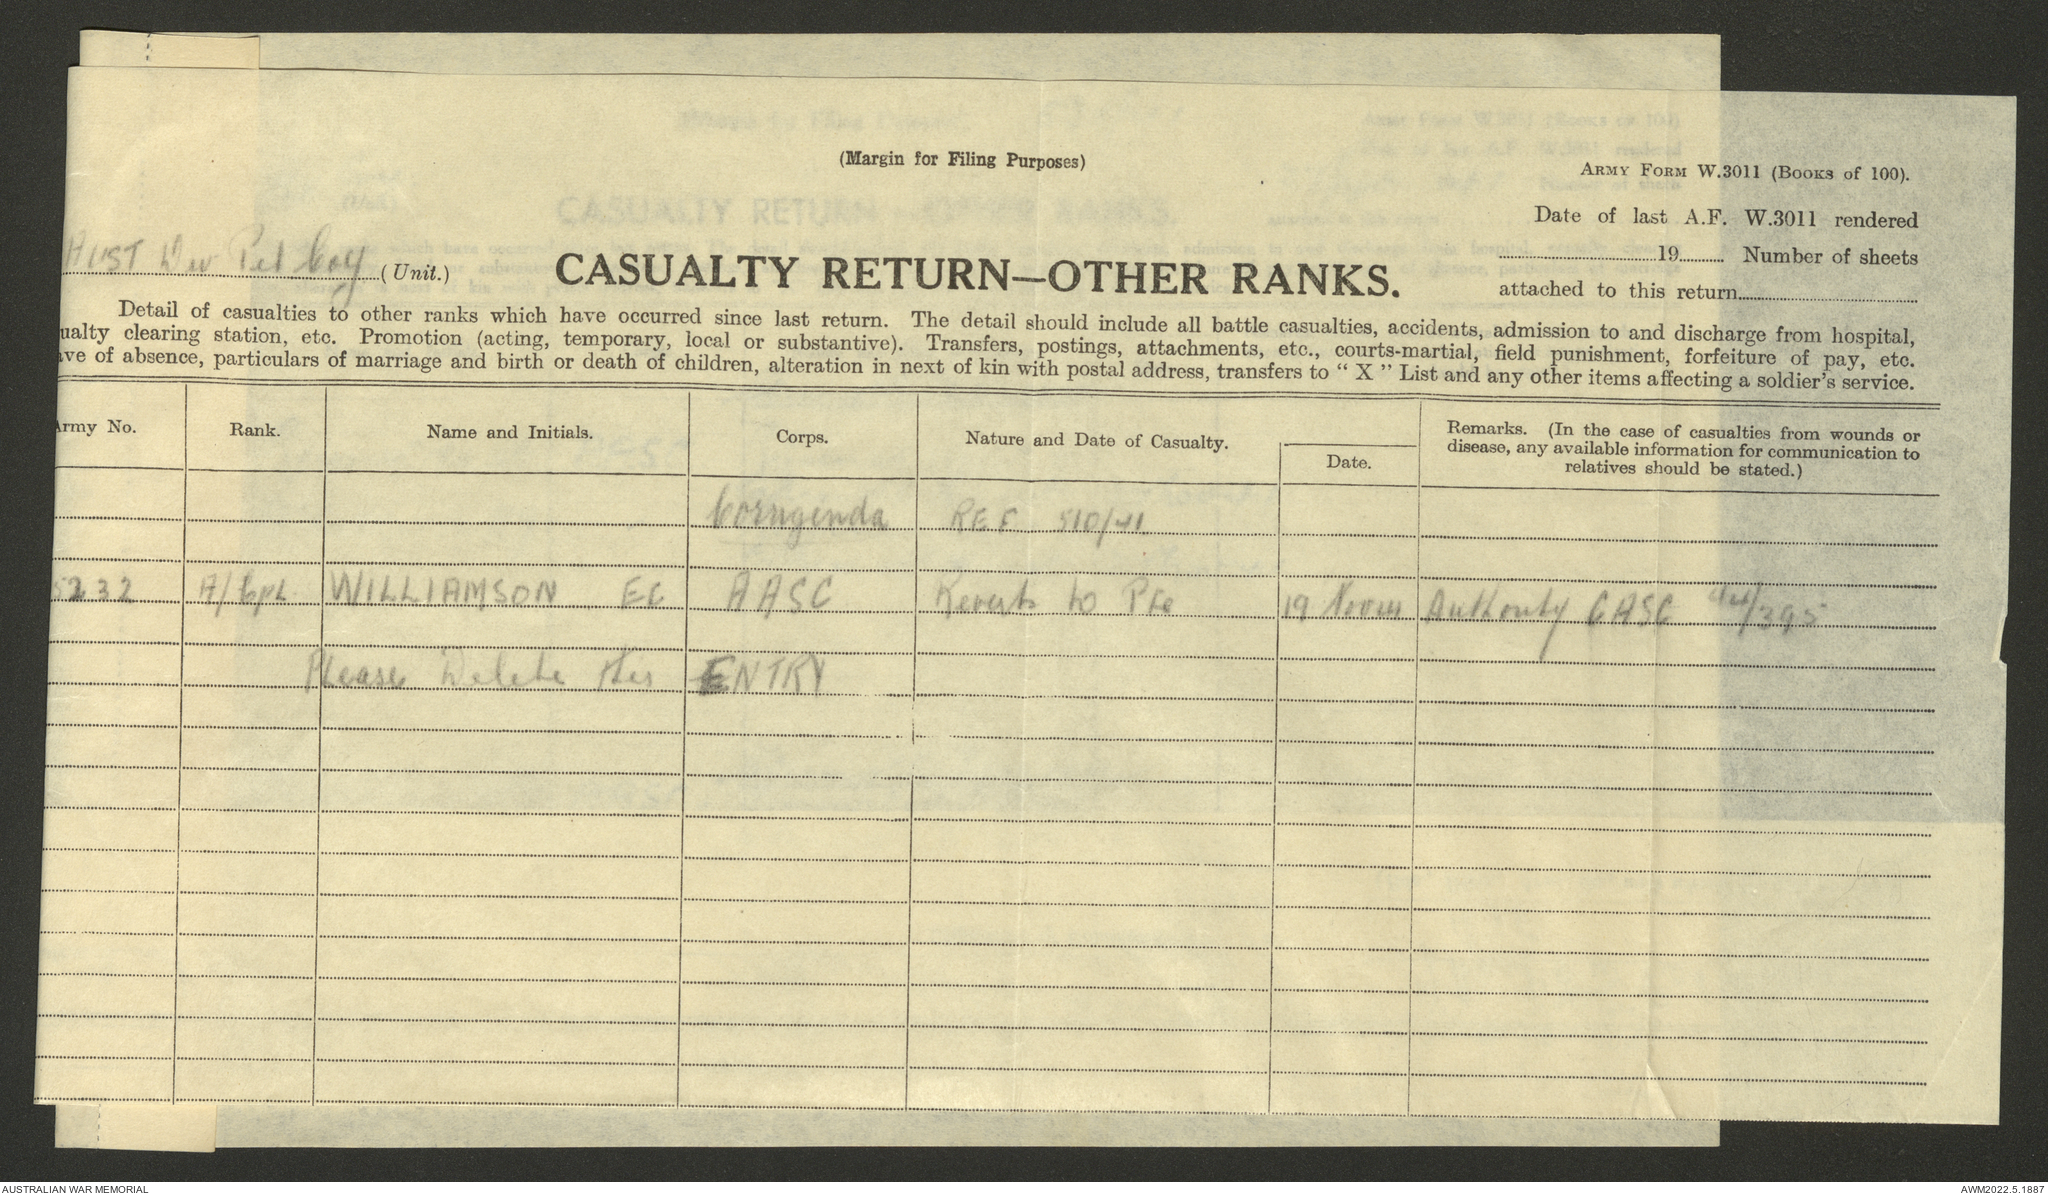 (Margin for Filing Purposes)
ARMY FORM W.3011 (BOOKS of 100).
Date of last A.F. W.3011 rendered
19 Number of sheets
attached to this return
AUST Div Pet Coy (Unit.)
CASUALTY RETURN—OTHER RANKS.
Detail of casualties to other ranks which have occurred since last return. The detail should include all battle casualties, accidents, admission to and discharge from hospital,
ualty clearing station, etc. Promotion (acting, temporary, local or substantive). Transfers, postings, attachments, etc., courts-martial, field punishment, forfeiture of pay, etc.
ave of absence, particulars of marriage and birth or death of children, alteration in next of kin with postal address, transfers to " X " List and any other items affecting a soldier's service.
Army No. Rank. Name and Initials. Corps. Nature and Date of Casualty. Date. Remarks. (In the case of casualties from wounds or
disease, any available information for communication to
relatives should be stated.)
Corrigenda REF 510/41
5232 A/Cpl WILLIAMSON EC AASC Reverts to Pte 19 Authority CASC
Please Delete this ENTRY
AUSTRALIAN WAR MEMORIAL
AWM2022.5.1887